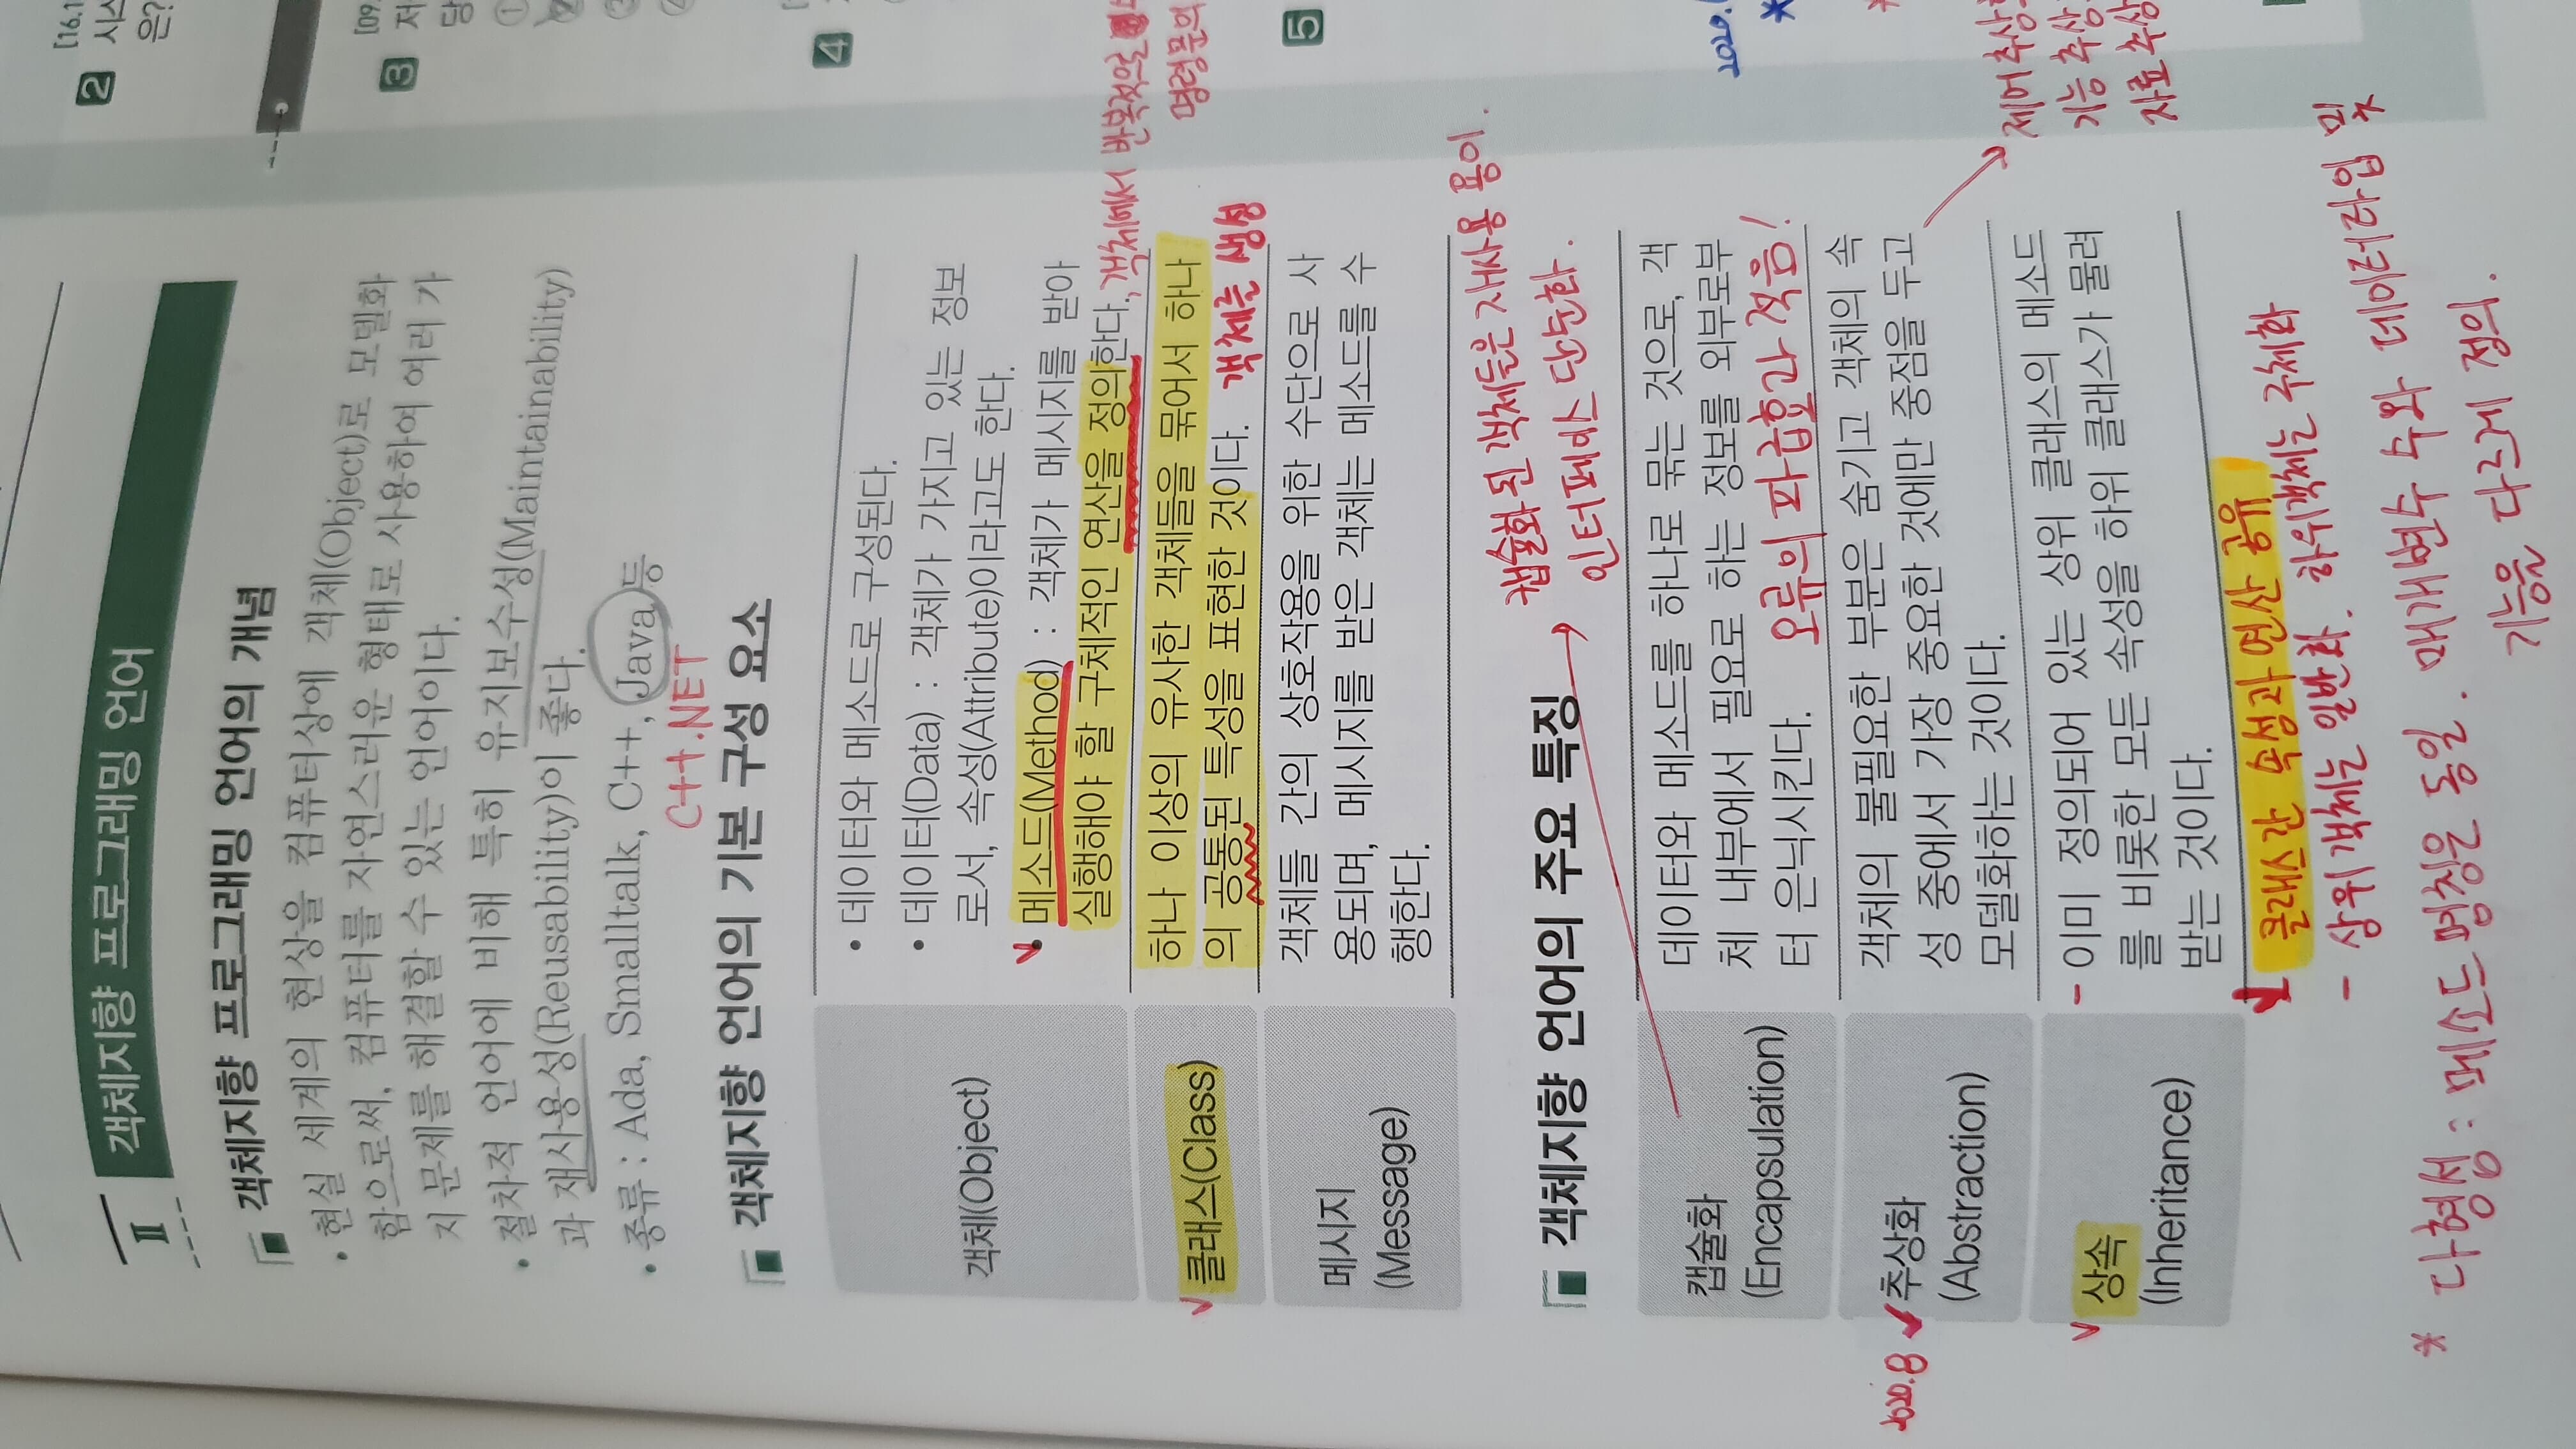 II 객체지향 프로그래밍 언어
객체지향 프로그래밍 언어의 개념
• 현실 세계의 현상을 컴퓨터상에 객체(Object)로 모델화
함으로써, 컴퓨터를 자연스러운 형태로 사용하여 여러 가
지 문제를 해결할 수 있는 언어이다.
• 절차적 언어에 비해 특히 유지보수성(Maintainability)
과 재사용성(Reusability)이 좋다.
• 종류 : Ada, Smalltalk, C++, Java 등
C++.NET
객체지향 언어의 기본 구성 요소
객체(Object)
• 데이터와 메소드로 구성된다.
• 데이터(Data) : 객체가 가지고 있는 정보
로서, 속성(Attribute)이라고도 한다.
• 메소드(Method) : 객체가 메시지를 받아
실행해야 할 구체적인 연산을 정의한다. , 객체에서 반복적으로
명령문의
클래스(Class)
하나 이상의 유사한 객체들을 묶어서 하나
의 공통된 특성을 표현한 것이다. 객체를 생성
메시지
(Message)
객체들 간의 상호작용을 위한 수단으로 사
용되며, 메시지를 받은 객체는 메소드를 수
행한다.
객체지향 언어의 주요 특징
캡슐화된 객체들은 재사용 용이.
인터페이스 단순화.
캡슐화
(Encapsulation)
데이터와 메소드를 하나로 묶는 것으로, 객
체 내부에서 필요로 하는 정보를 외부로부
터 은닉시킨다. 오류의 파급효과 적음!
2020.8
추상화
(Abstraction)
객체의 불필요한 부분은 숨기고 객체의 속
성 중에서 가장 중요한 것에만 중점을 두고
모델화하는 것이다.
제어추상
기능추상
자료추상
상속
(Inheritance)
- 이미 정의되어 있는 상위 클래스의 메소드
를 비롯한 모든 속성을 하위 클래스가 물려
받는 것이다.
클래스간 속성과 연산 공유
- 상위객체는 일반화. 하위객체는 구체화
* 다형성 : 메소드 명칭은 동일. 매개변수 수와 데이터타입 및
기능을 다르게 정의.
2
[16.1
시스
은?
3
[09.
저
당
①
②
③
④
4
5
2020.
*